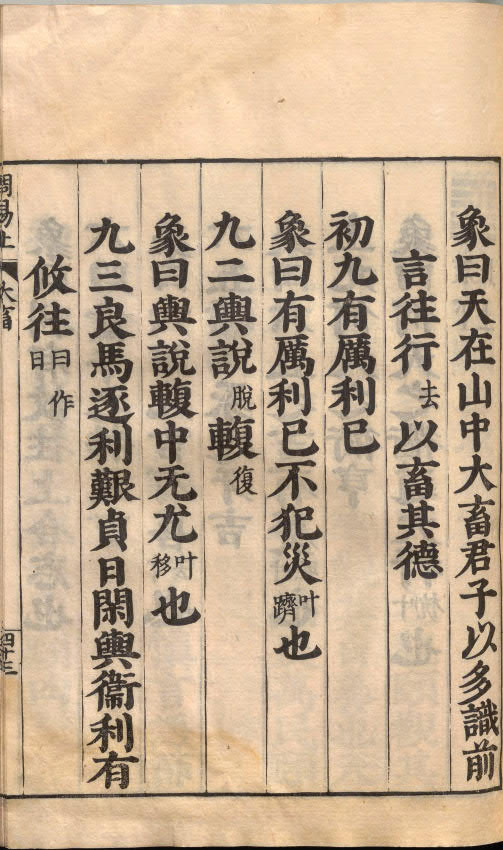 象曰天在山中大畜君子以多識前
言往行去以畜其德
初九有厲利已
象曰有厲利已不犯災叶躋也
九二輿說脫輹復
象曰輿說輹中无尤叶移也
九三良馬逐利艱貞日閑輿衞利有
攸往曰作日
周易上 大畜 四十二